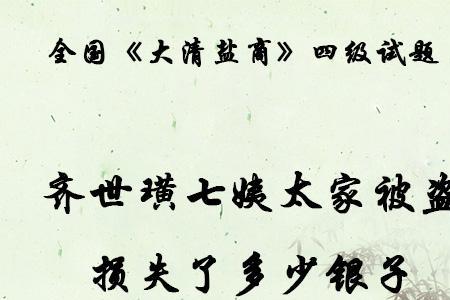 全国《大清盐商》四级试题
齐世璜七姨太家被盗
损失了多少银子